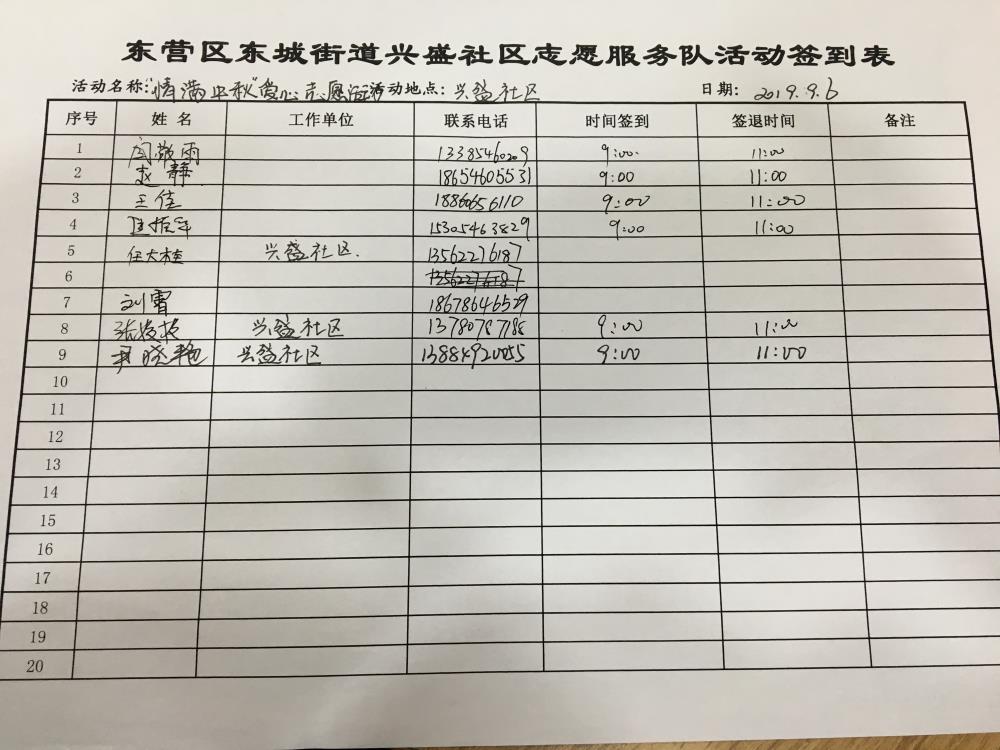 东营区东城街道兴盛社区志愿服务队活动签到表
活动名称:"情满中秋"爱心志愿活动 活动地点: 兴盛社区 日期: 2019.9.6
序号 姓名 工作单位 联系电话 时间签到 签退时间 备注
1 闫敬雨 13385460209 9:00 11:00
2 赵静 18654605531 9:00 11:00
3 王佳 18860656110 9:00 11:00
4 15305463829 9:00 11:00
5 任大桂 兴盛社区. 13562276187
6 13562276187
7 刘霄 18678646529
8 兴盛社区 13780787188 9:00 11:00
9 晓艳 兴盛社区 13884920055 9:00 11:00
10
11
12
13
14
15
16
17
18
19
20